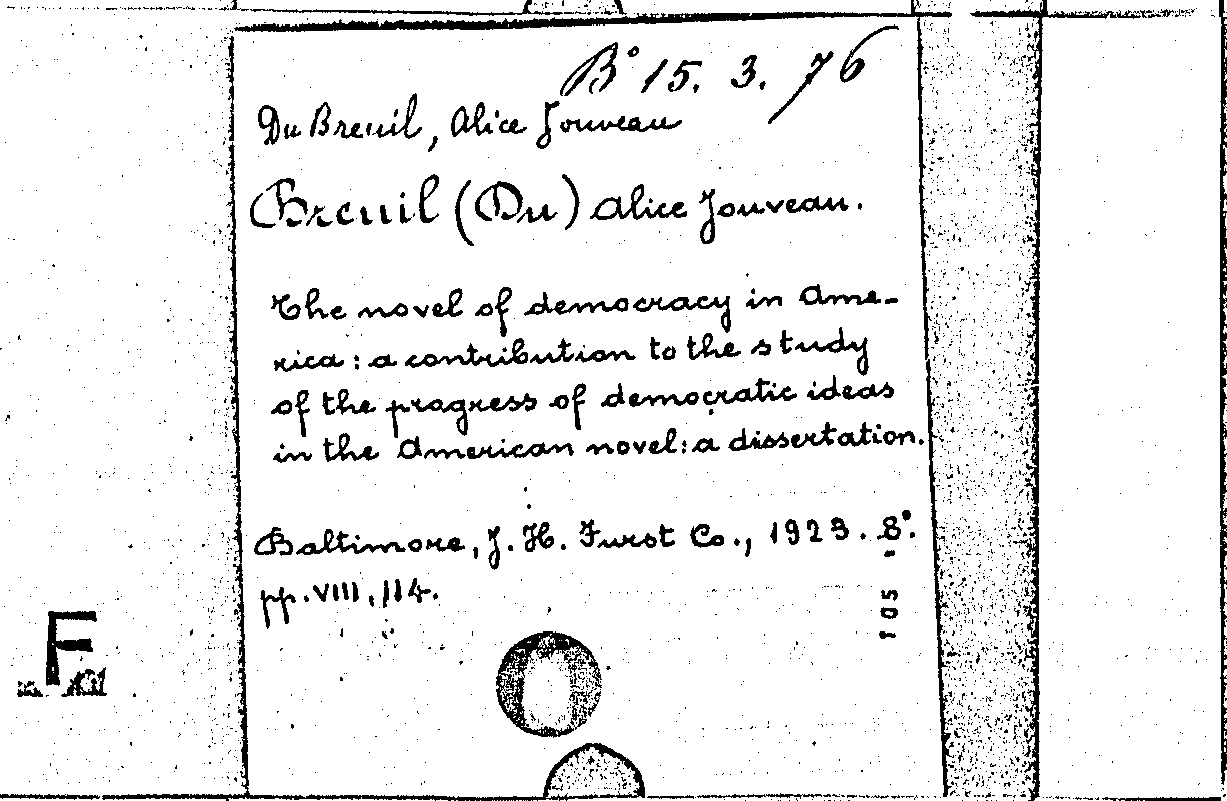 B° 15. 3. 76
Du Breuil, Alice Jouveau
Breuil (Du) Alice Jouveau.
The novel of democracy in Ame-
rica: a contribution to the study
of the progress of democratic ideas
in the American novel: a dissertation.
Baltimore, J. H. Furst Co., 1923. 8°.
pp. VIII, 114.
105
F